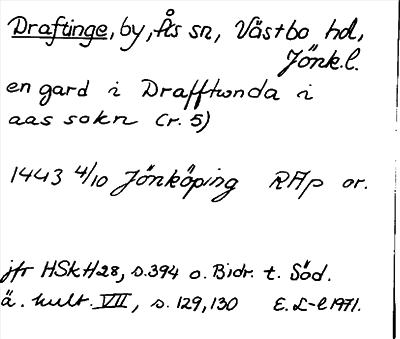 Draftinge, by, Ås sn, Västbo hd,
Jönk.l.
en gard i Drafftunda i
aas sokn (r. 5)
1443 4/10 Jönköping RAp or.
jfr HSkH28, s.394 o. Bidr. t. Söd.
ä. kult. VIII, s. 129, 130 E. L-l 1971.